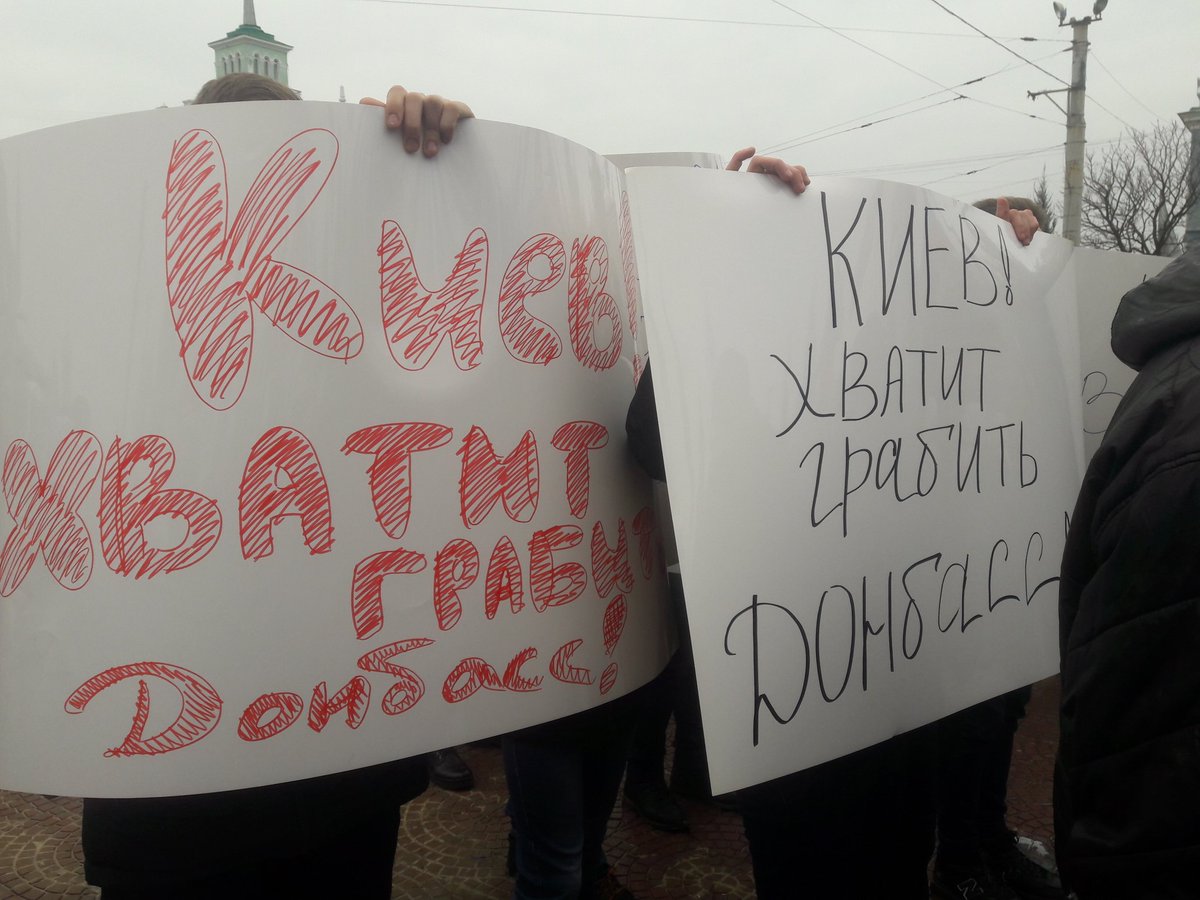 Киев!
ХВАТИТ
ГРАБИТ
Донбасс!
КИЕВ!
ХВАТИТ
грабить
Донбасс!